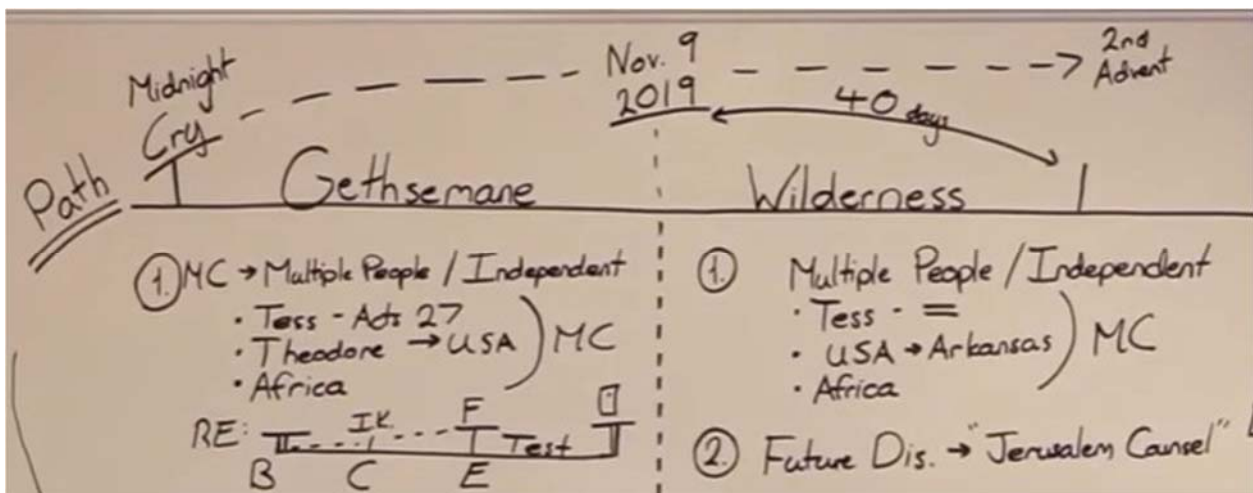 Midnight
Cry
Nov. 9
2019
2nd
Advent
40 days
Path
Gethsemane
Wilderness
1. MC → Multiple People / Independent
· Tess - Acts 27
· Theodore → USA
· Africa
MC
RE:
I.K.
F
Test
B
C
E
1. Multiple People / Independent
· Tess - =
· USA → Arkansas
· Africa
MC
2. Future Dis. → "Jerusalem Counsel"